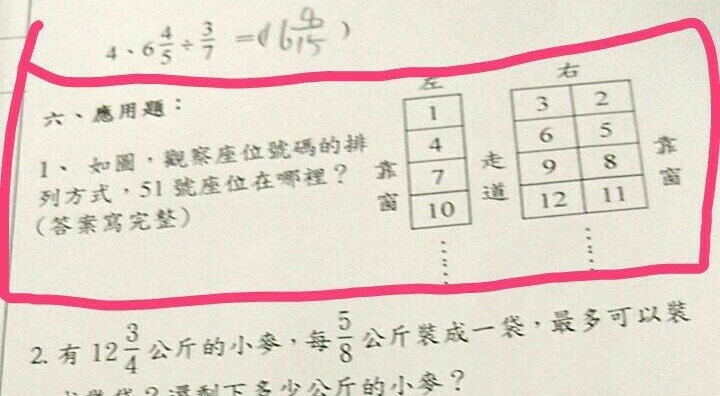 4、6 4/5 ÷ 3/7 =(16 8/15)
六、應用題：
1、 如圖，觀察座位號碼的排
列方式，51 號座位在哪裡？
(答案寫完整)
左 右
1 3 2
4 6 5
7 9 8
10 12 11
靠窗 走道 靠窗
2. 有 12 3/4 公斤的小麥，每 5/8 公斤裝成一袋，最多可以裝
袋？還剩下多少公斤的小麥？